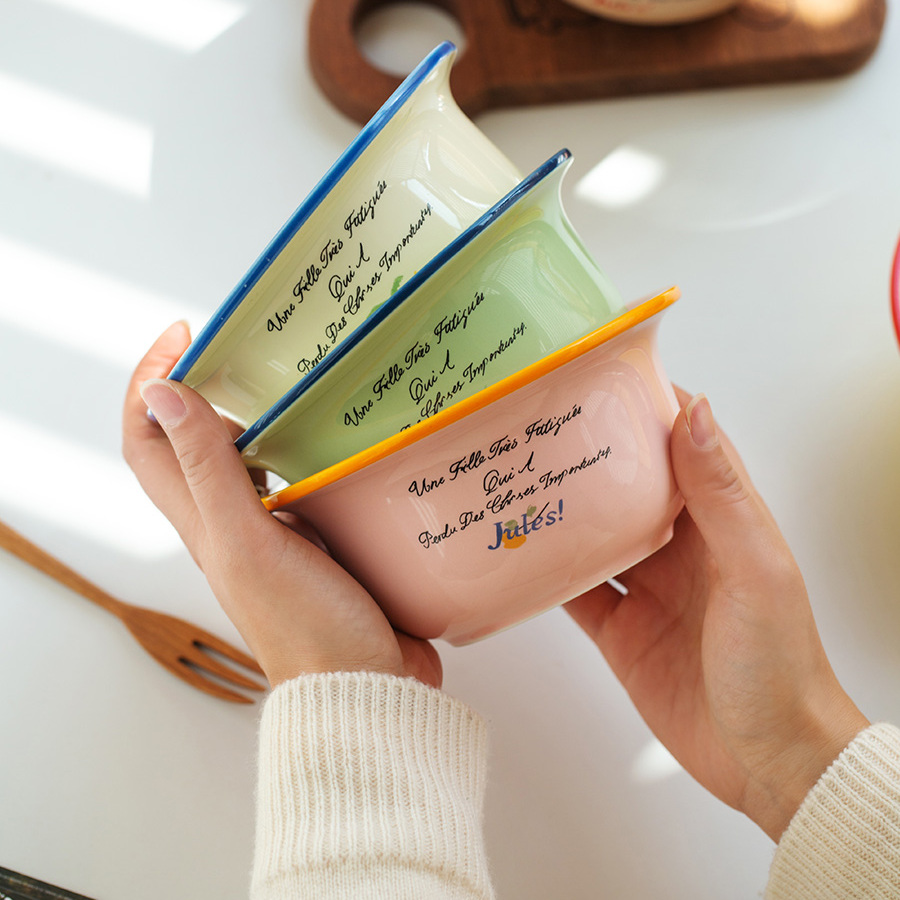 Une Fille Très Fatiguée
Qui A
Perdu Des Choses Importants.
Une Fille Très Fatiguée
Qui A
Des Choses Importants.
Une Fille Très Fatiguée
Qui A
Perdu Des Choses Importants.
Jules!